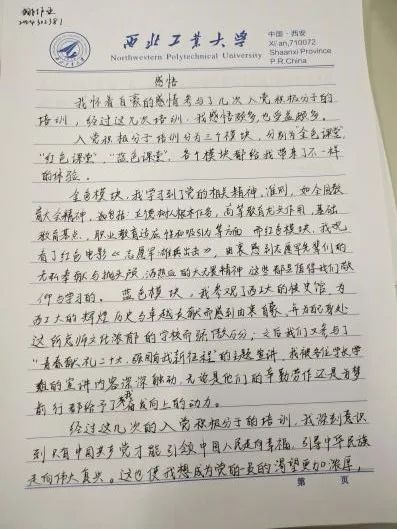 西北工业大学
Northwestern Polytechnical University
中国·西安
Xi'an,710072
Shaanxi Province
P.R.China
感悟
我怀着自豪的感情参与了几次入党积极分子的
培训，经过这几次培训，我感悟颇多也受益颇多。
入党积极分子培训分为三个模块，分别为"金色课堂"
"红色课堂"，"蓝色课堂"，各个模块都给我带来了不一样
的体验。
金色模块，我学习到了党的相关精神，准则，如全国教
育大会精神，立德树人根本任务，高等教育龙头作用，基础
教育基点，职业教育适应性和吸引力等方面 而红色模块，我观
看了红色电影《志愿军：雄兵出击》，由衷感到志愿军先辈们的
无私奉献与抛头颅、洒热血的大无畏精神 这些都是值得我们敬
仰与学习的。 蓝色模块，我参观了西工大的校史馆，为
西工大的辉煌历史与卓越贡献而感到由衷自豪，并为自己身处
这所底蕴文化浓郁的学校而骄傲万分；之后我们又参与了
"青春献礼二十大，强国有我新征程"的主题宣讲，我被各位学长学
姐的宣讲内容深深触动，无论是他们的辛勤劳作还是负梦
前行都给予了我奋发向上的动力。
经过这几次的入党积极分子的培训，我深刻意识
到只有中国共产党才能引领中国人民走向幸福，引导中华民族
走向伟大复兴。这也使我想成为党的一员的渴望更加浓厚，
第 页